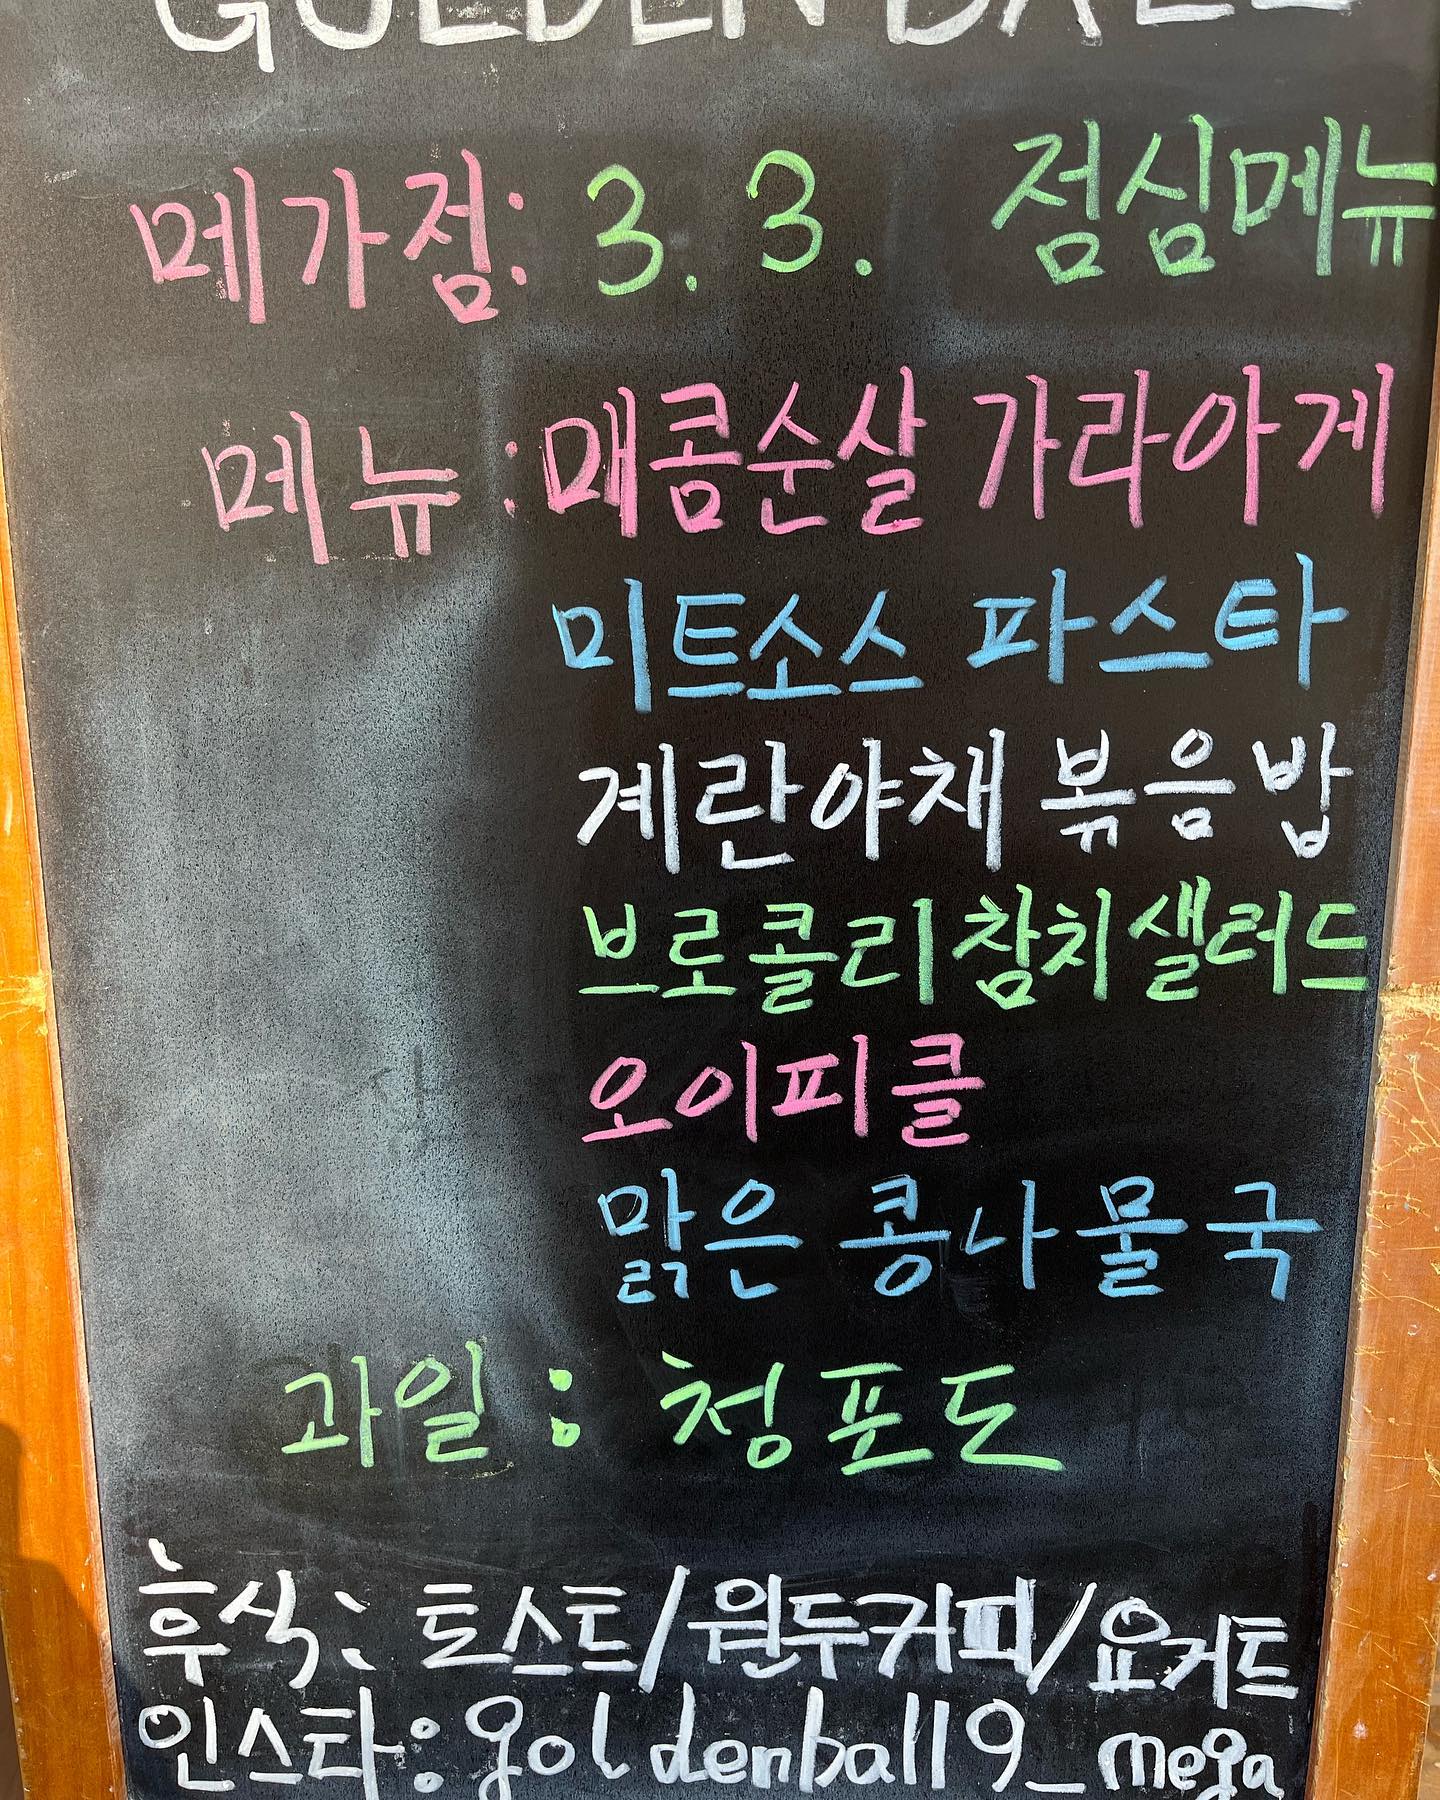 GOLDEN BALL
메가점: 3. 3. 점심메뉴
메뉴 : 매콤순살 가라아게
미트소스 파스타
계란야채 볶음밥
브로콜리참치샐러드
오이피클
맑은 콩나물국
과일 : 청포도
후식: 토스트/원두커피/요거트
인스타: goldenball19_mega